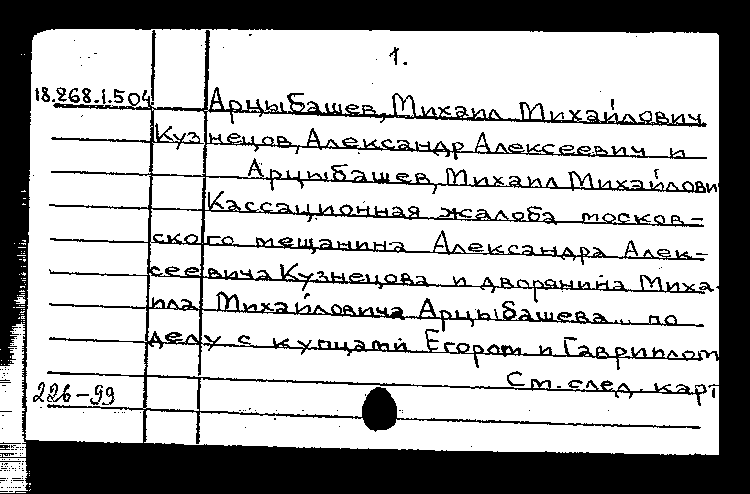 1.
18.268.1.504 Арцыбашев, Михаил Михайлович
Кузнецов, Александр Алексеевич и
Арцыбашев, Михаил Михайлови
Кассационная жалоба москов-
ского мещанина Александра Алек-
сеевича Кузнецова и дворянина Миха-
ила Михайловича Арцыбашева... по
делу с купцами Егором и Гавриилом
См. след. карт
226-99